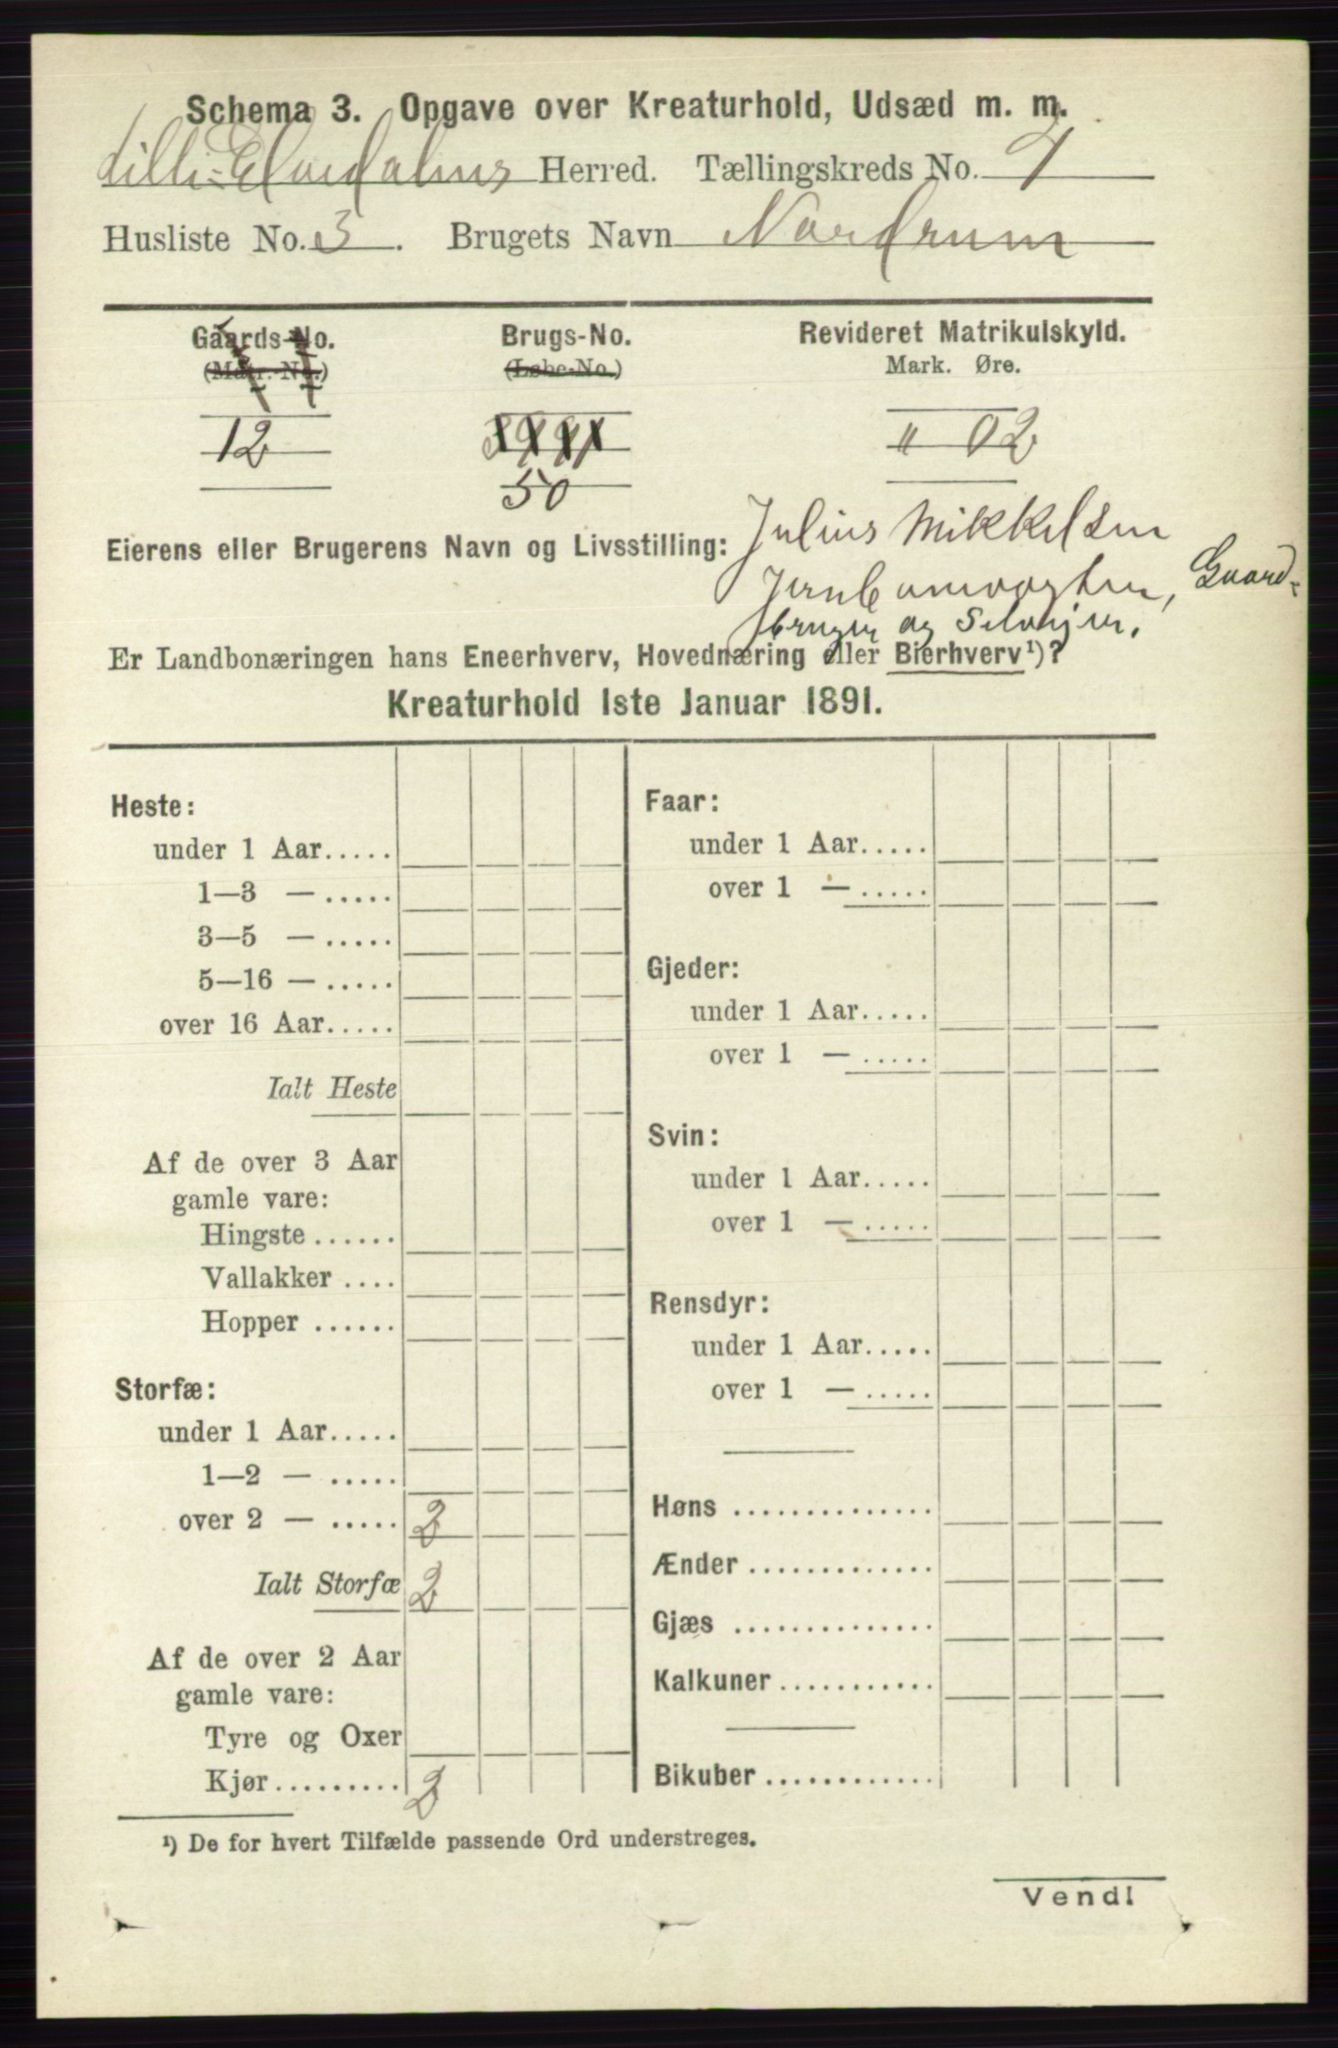 Schema 3. Opgave over Kreaturhold, Udsæd m. m.
Lille-Elvedalens Herred. Tællingskreds No. 7
Husliste No. 3. Brugets Navn Nordrum
Gaards-No. Brugs-No. Revideret Matrikulskyld.
(Matr.-No.) (Løbe-No.) Mark. Øre.
12 " 02
50
Eierens eller Brugerens Navn og Livsstilling: Julius Mikkelsen
Jernbanevogter, Gaard-
bruger og Selveier.
Er Landbonæringen hans Eneerhverv, Hovednæring eller Bierhverv¹)?
Kreaturhold 1ste Januar 1891.
Heste:
under 1 Aar.....
1—3 — .....
3—5 — .....
5—16 — .....
over 16 Aar.....
Ialt Heste
Af de over 3 Aar
gamle vare:
Hingste ......
Vallakker ....
Hopper ......
Storfæ:
under 1 Aar.....
1—2 — .....
over 2 — ..... 2
Ialt Storfæ 2
Af de over 2 Aar
gamle vare:
Tyre og Oxer
Kjør......... 2
Faar:
under 1 Aar.....
over 1 — .....
Gjeder:
under 1 Aar.....
over 1 — .....
Svin:
under 1 Aar.....
over 1 — .....
Rensdyr:
under 1 Aar.....
over 1 — .....
Høns ..............
Ænder .............
Gjæs ..............
Kalkuner ...........
Bikuber ............
¹) De for hvert Tilfælde passende Ord understreges.
Vend!